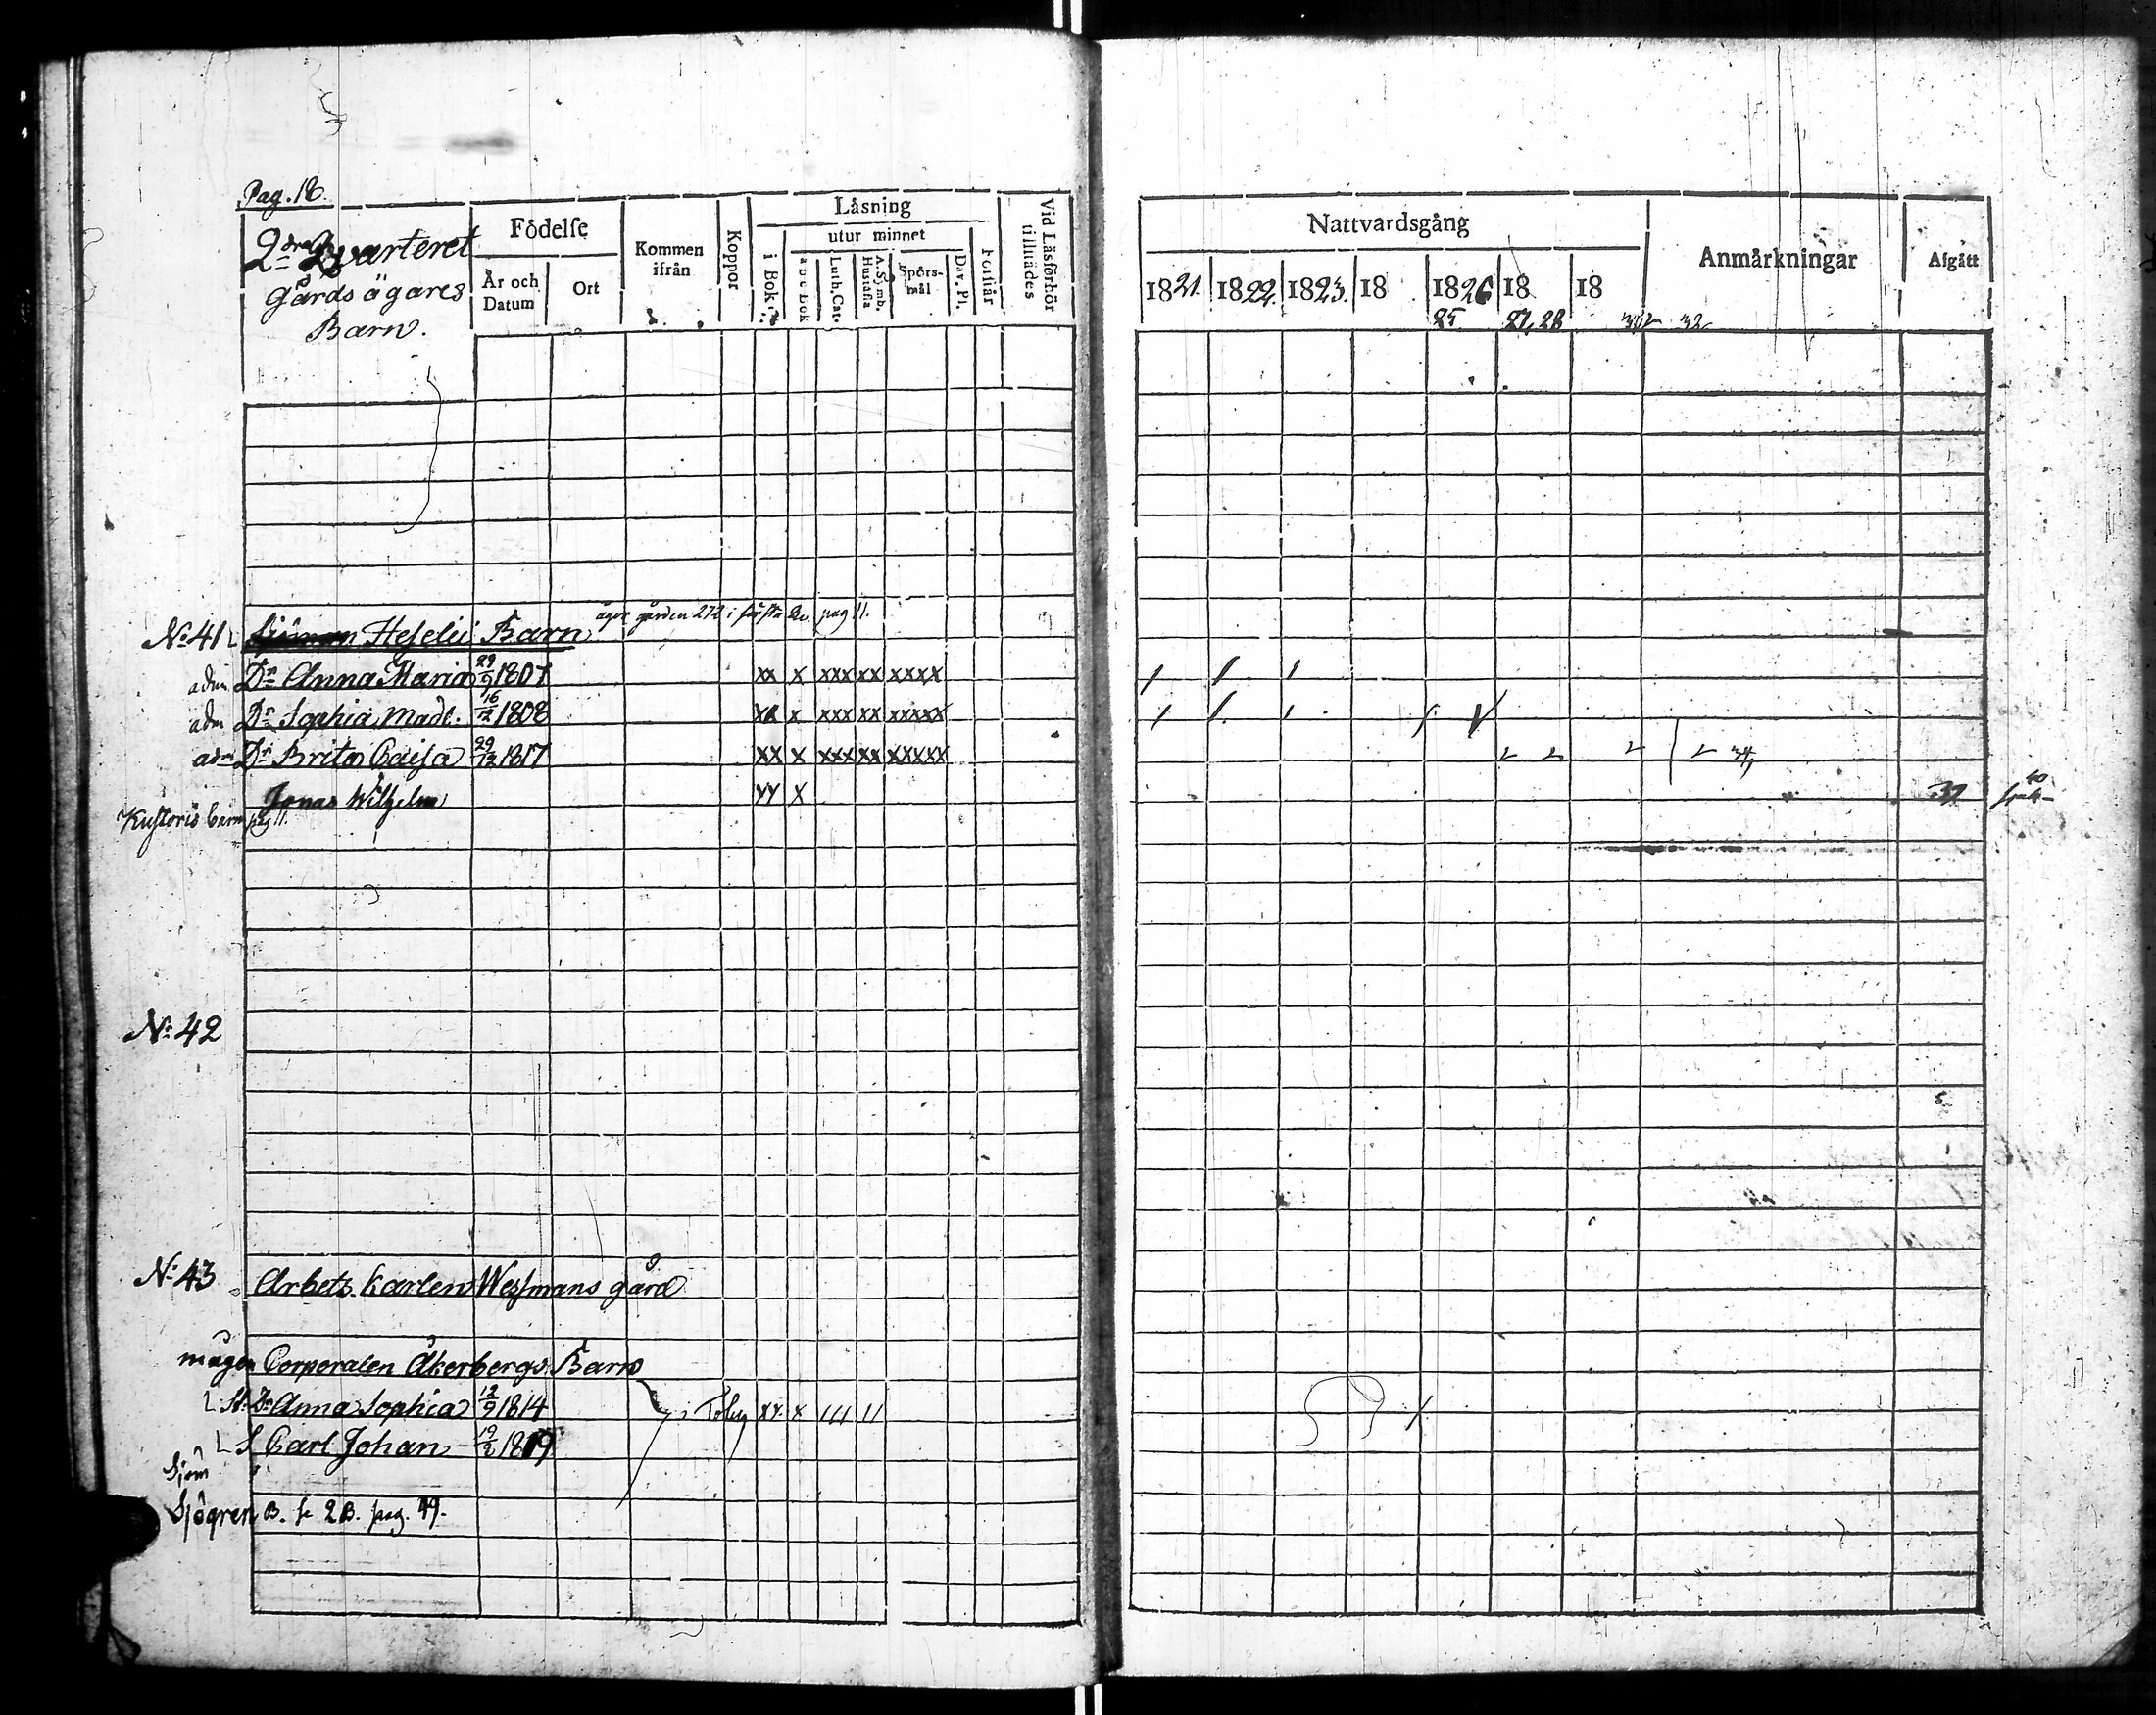 Pag. 18.
2dra Qvarteret
Gårds ägares
Barn.
Födelse
År och Datum
Ort
Kommen ifrån
Koppor
Läsning
i Bok
utur minnet
a b c bok
Luth. Cat.
A. Symb. Hustafla
Spörs-mål
Dav. Ps.
Förstår
Vid Läsförhör tillstädes
Nattvardsgång
1821. 1822. 1823. 18 1826 18 18
25 27, 28 32
Anmärkningar
Afgått
äger gården 272 i första Qv. pag 11.
No 41 Heselii Barn
adm Dr Anna Maria 29/9 1807 xx x xxx xx xxxx / / /
adm Dr Sophia Madl. 16/12 1808 xx x xxx xx xxxxx / / /
adm Dr Brita Caisa 29/12 1817 xx x xxx xx xxxxx
Jonas Wilhelm xx x 37
Kustoris barn pag 11.
No 42
No 43 Arbets karlen Wessmans gård
mågen Corporalen Åkerbergs Barn
St. Dr Anna Sophia 12/9 1814 xx x /// //
S Carl Johan 19/2 1819
Sjöm
Sjögren B. se 2 B. pag. 49.